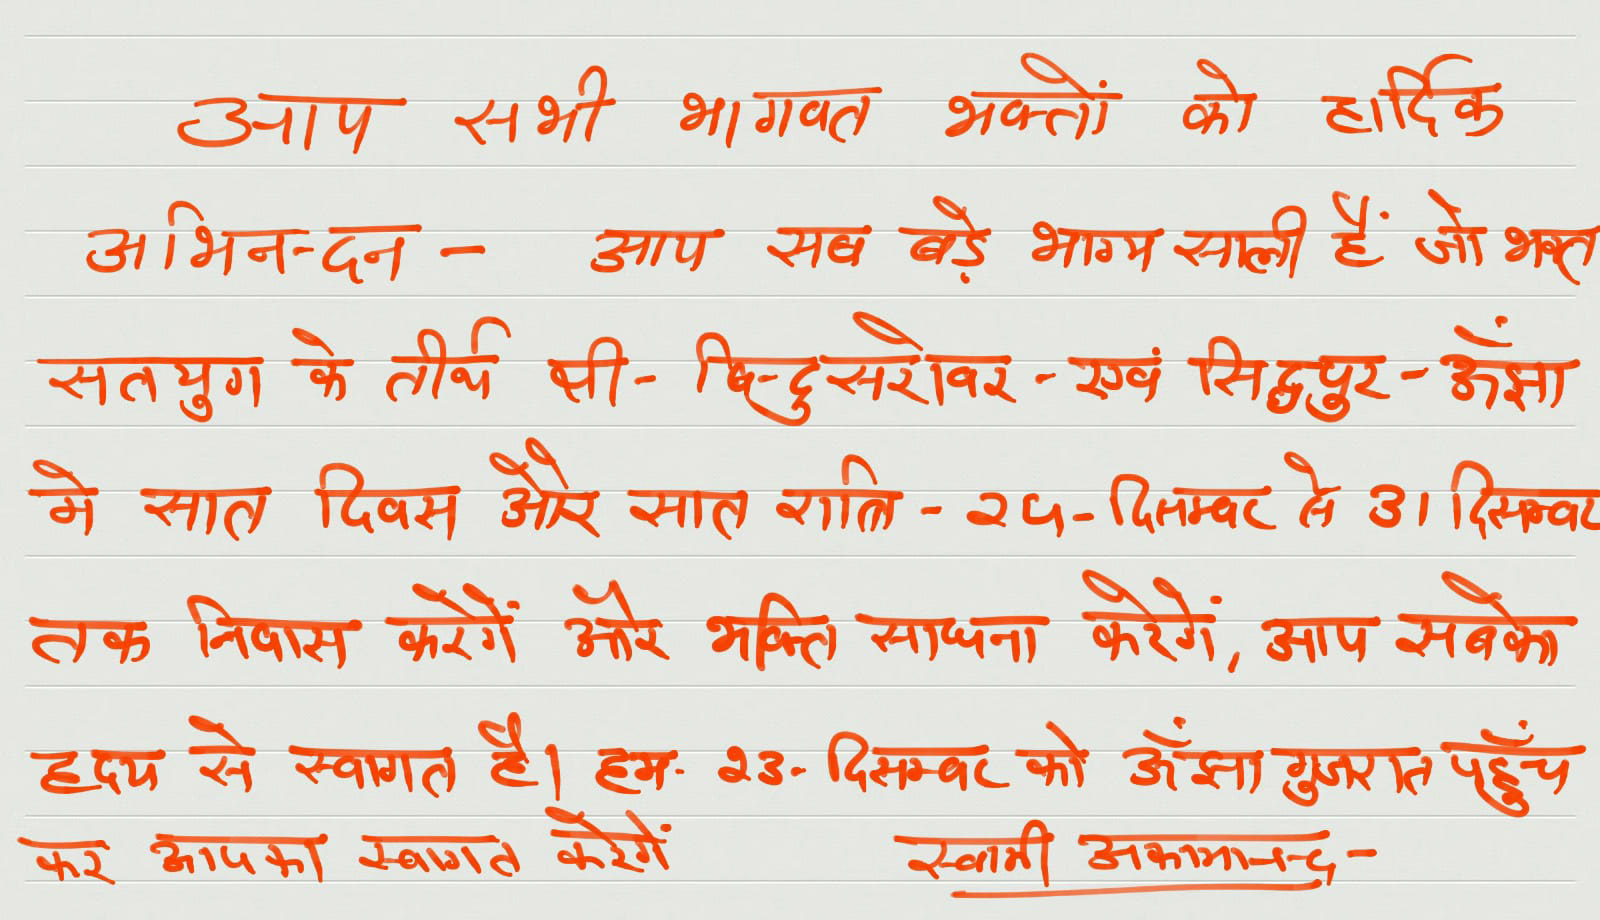 आप सभी भागवत भक्तों को हार्दिक
अभिनन्दन - आप सब बड़े भाग्य साली हैं जो भक्त
सतयुग के तीर्थ श्री - बिन्दुसरोवर - एवं सिद्धपुर - ऊँझा
मे सात दिवस और सात रात्रि - २५ - दिसम्बर से ३१ दिसम्बर
तक निवास करेगें और भक्ति साधना करेगें, आप सबका
हृदय से स्वागत है। हम - २३ - दिसम्बर को ऊँझा गुजरात पहुँच
कर आपका स्वागत करेगें स्वामी अकामानन्द -